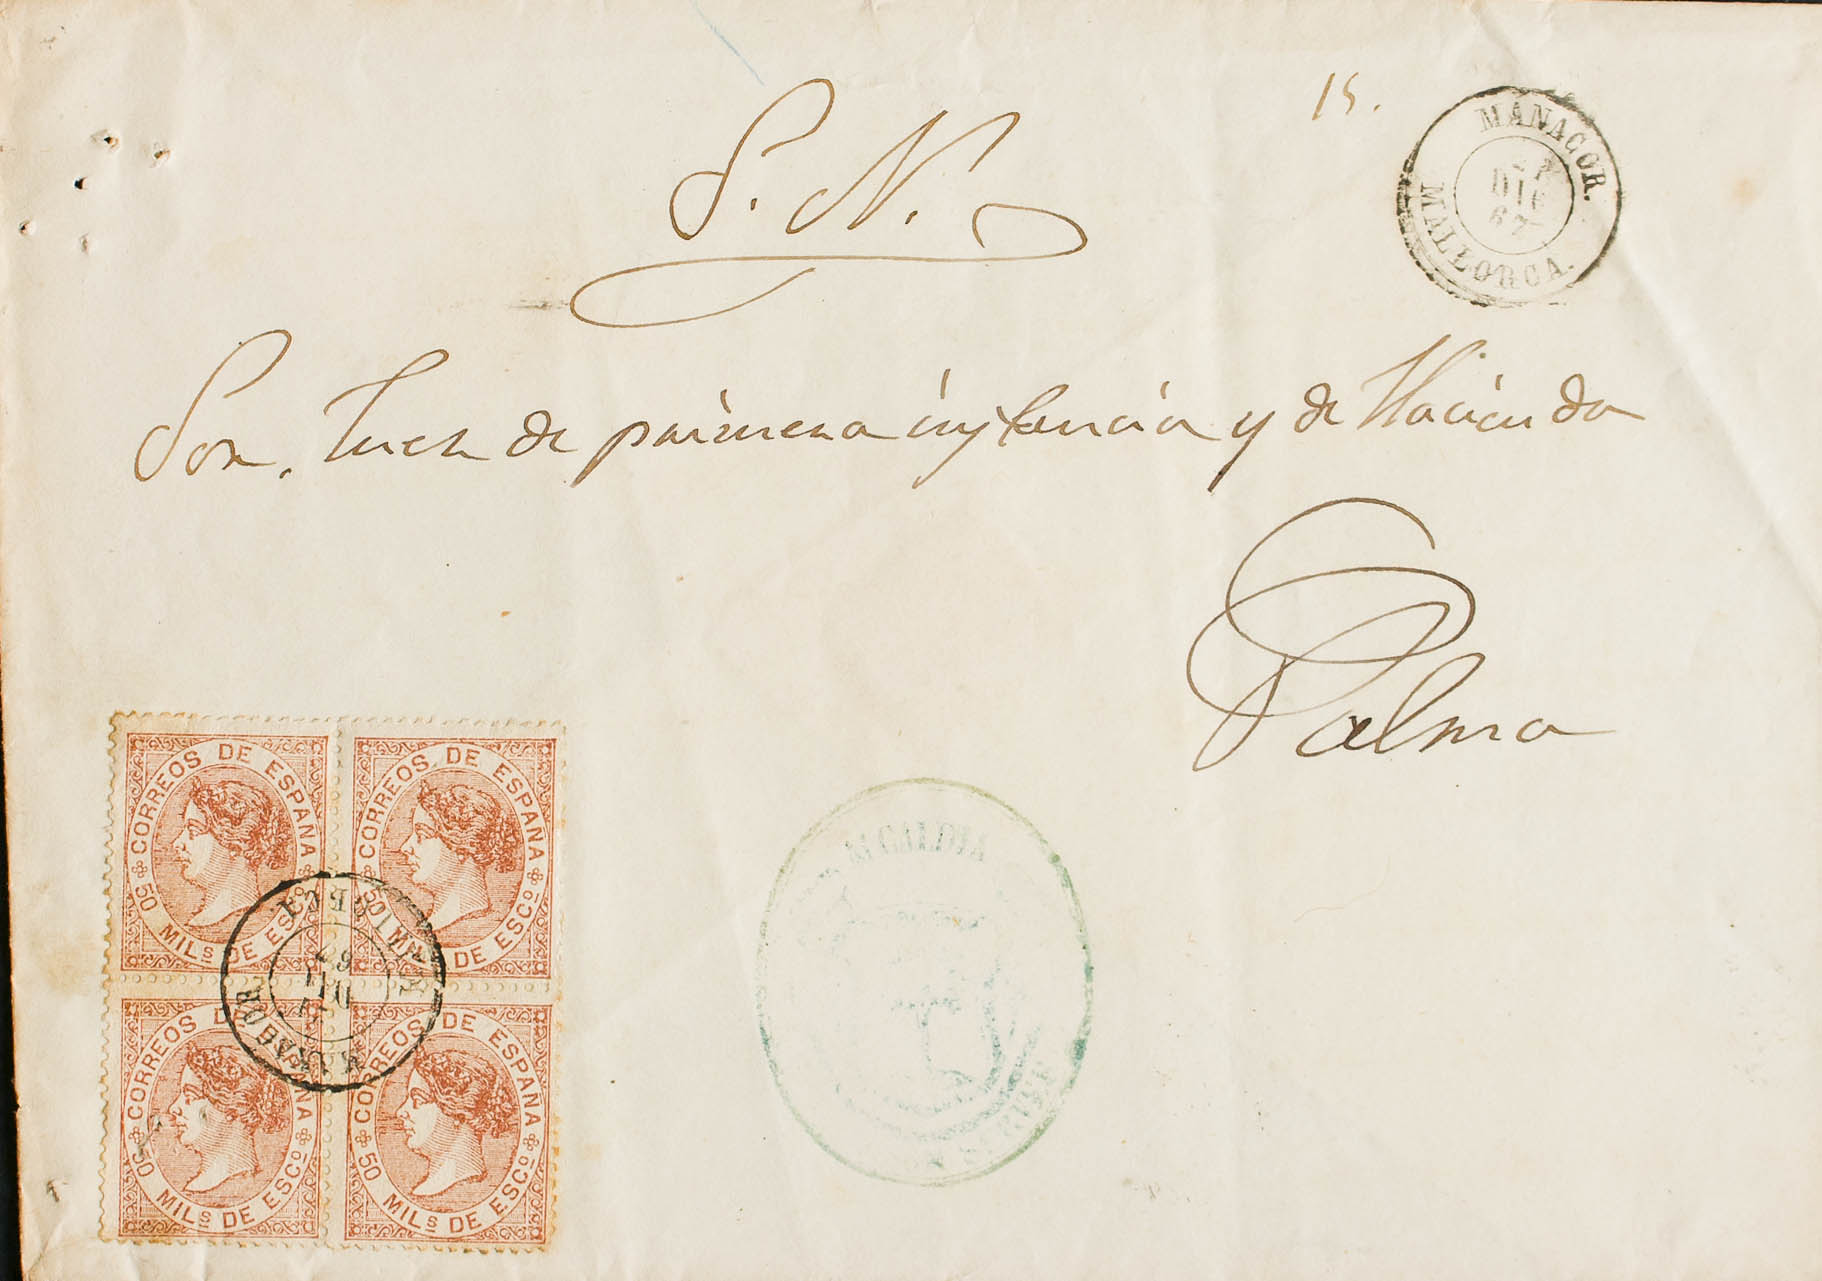 S. N.
15.
MANACOR.
DIC
67
MALLORCA.
Sor. Juez de primera instancia y de Hacienda
Palma
CORREOS DE ESPAÑA
50 MILS DE ESCO
CORREOS DE ESPAÑA
50 MILS DE ESCO
MALLORCA
67
DIC
MANACOR.
ALCALDIA
CORREOS DE ESPAÑA
50 MILS DE ESCO
CORREOS DE ESPAÑA
50 MILS DE ESCO